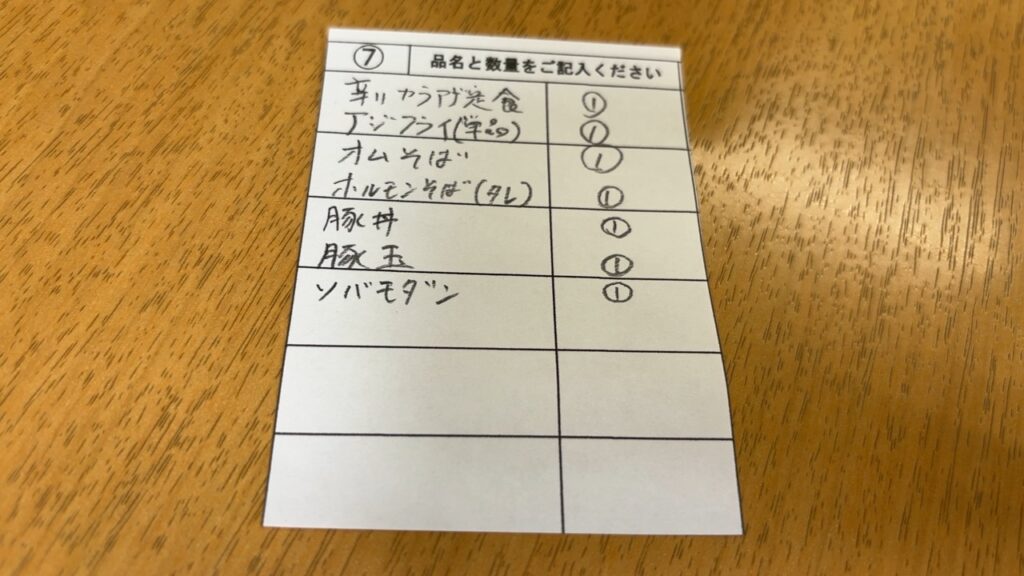 ⑦ 品名と数量をご記入ください
辛リカラアゲ定食 ①
アジフライ(単品) ①
オムそば ①
ホルモンそば(タレ) ①
豚丼 ①
豚玉 ①
ソバモダン ①